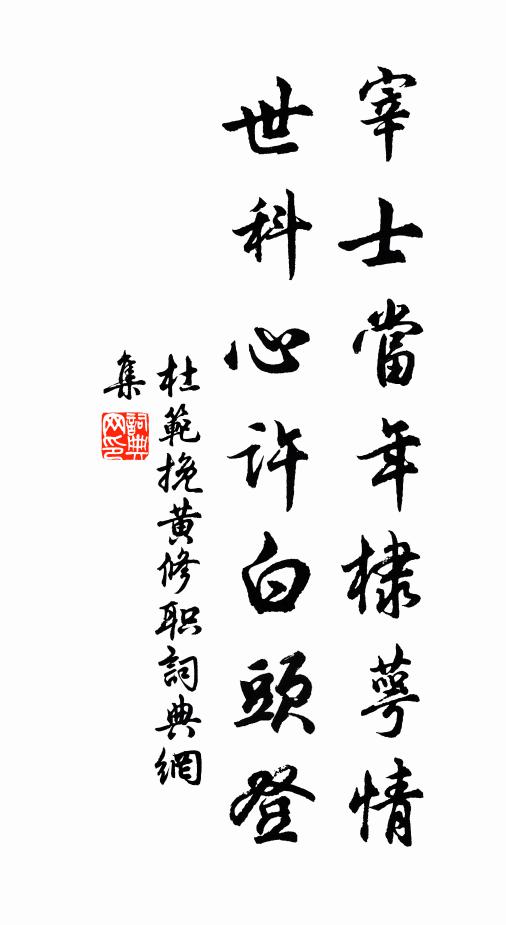 宰士當年棣萼情
世科心許白頭登
杜範挽黃修职詞典網
集
詞典
网印